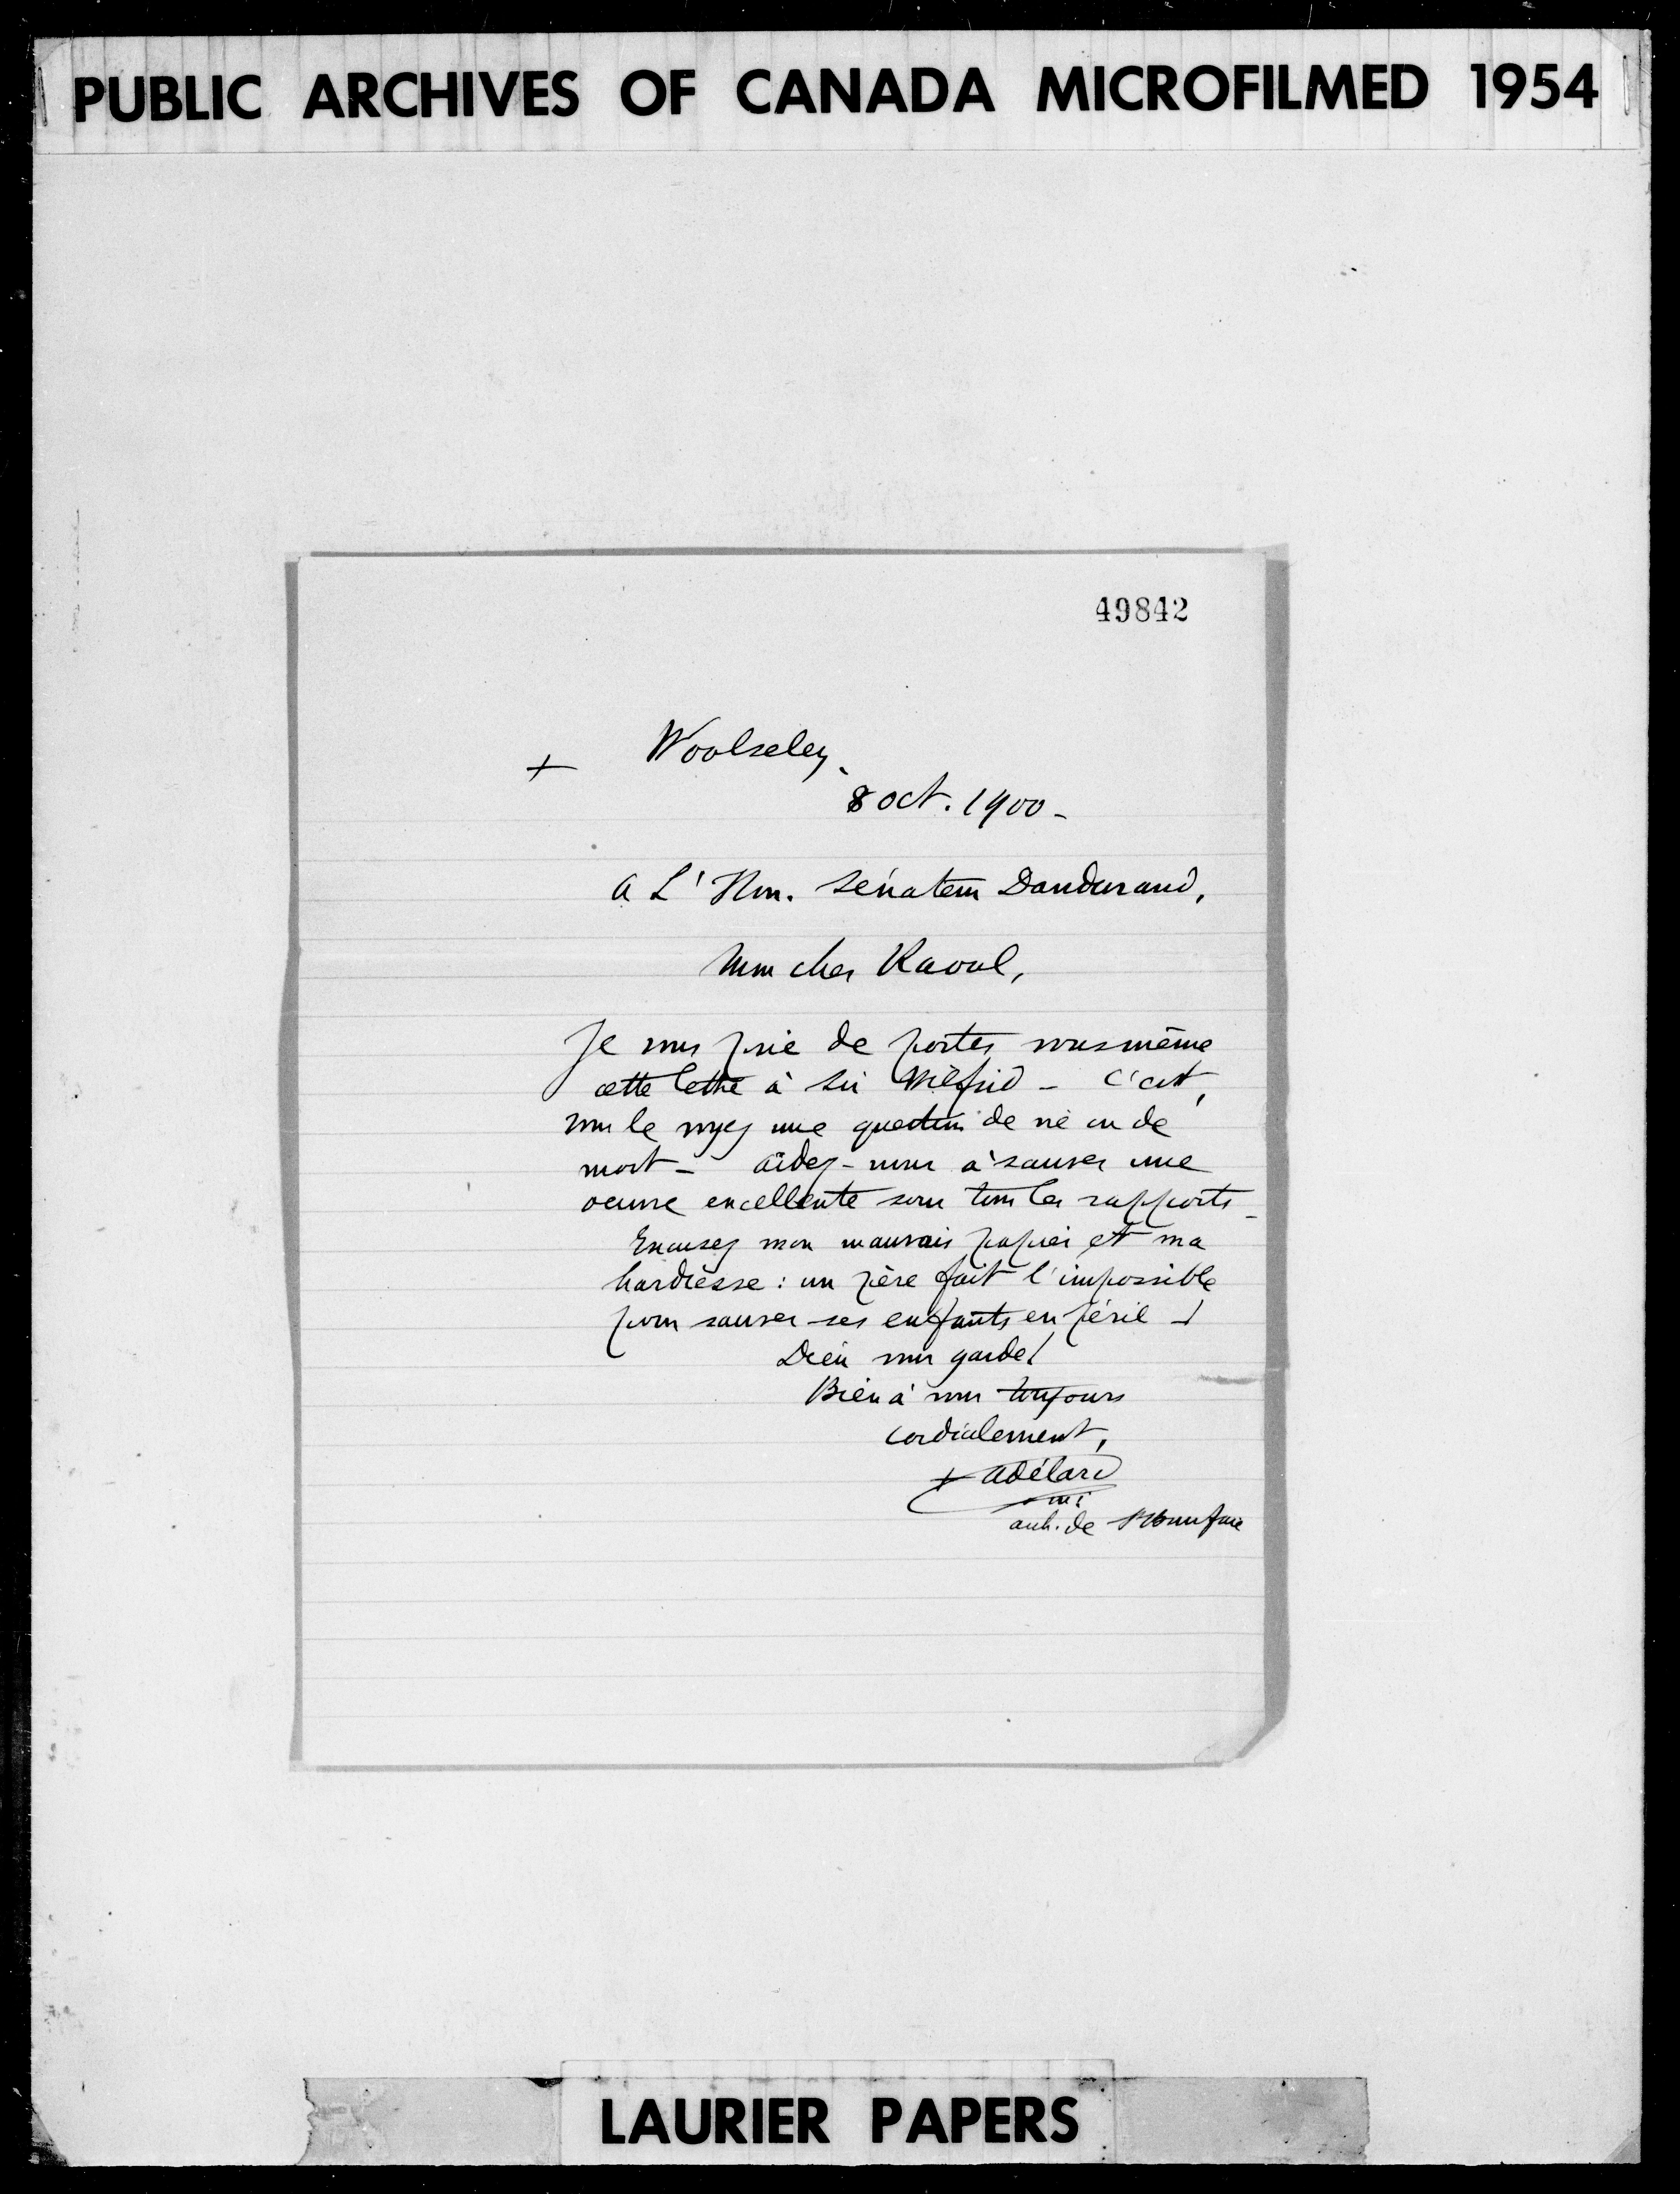 PUBLIC ARCHIVES OF CANADA MICROFILMED 1954
49842
+ Woolseley,
8 oct. 1900 -
A L'Hon. Sénateur Dandurand,
Mon cher Raoul,
Je vous prie de porter vous même
cette lettre à Sir Wilfrid - C'est,
vous le voyez une question de vie ou de
mort - aidez-nous à sauver une
oeuvre excellente sous tous les rapports -
Excusez mon mauvais papier et ma
hardiesse : un père fait l'impossible
pour sauver ses enfants en péril - !
Dieu vous garde !
Bien à vous toujours
cordialement,
+ Adélard
omi
arch. de St Boniface
LAURIER PAPERS